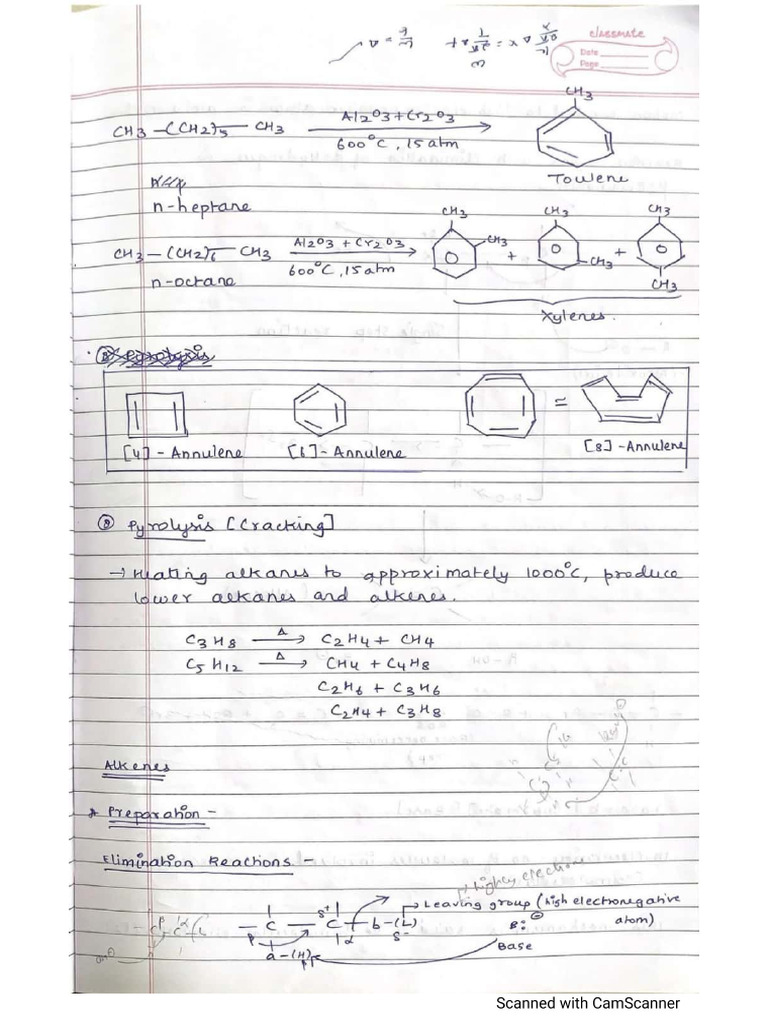 classmate
Date
Page
CH3 -(CH2)5 - CH3 Al2O3+Cr2O3 600°C, 15 atm CH3
Toluene
n-heptane
CH3 - (CH2)6 - CH3 Al2O3 + Cr2O3 600°C, 15 atm CH3 CH3 + CH3 CH3 + CH3 CH3
n-octane
Xylenes.
② Pyrolysis
[4] - Annulene [6] - Annulene = [8] - Annulene
② Pyrolysis [Cracking]
→ Heating alkanes to approximately 1000°C, produce
lower alkanes and alkenes.
C3H8 Δ→ C2H4 + CH4
C5H12 Δ→ CH4 + C4H8
C2H6 + C3H6
C2H4 + C3H8
Alkenes
* Preparation -
Elimination Reactions -
highly electro
- C - C - b - (L) → Leaving group (high electronegative
atom)
β δ+ α δ- B:⊖
a - (H) Base
Scanned with CamScanner